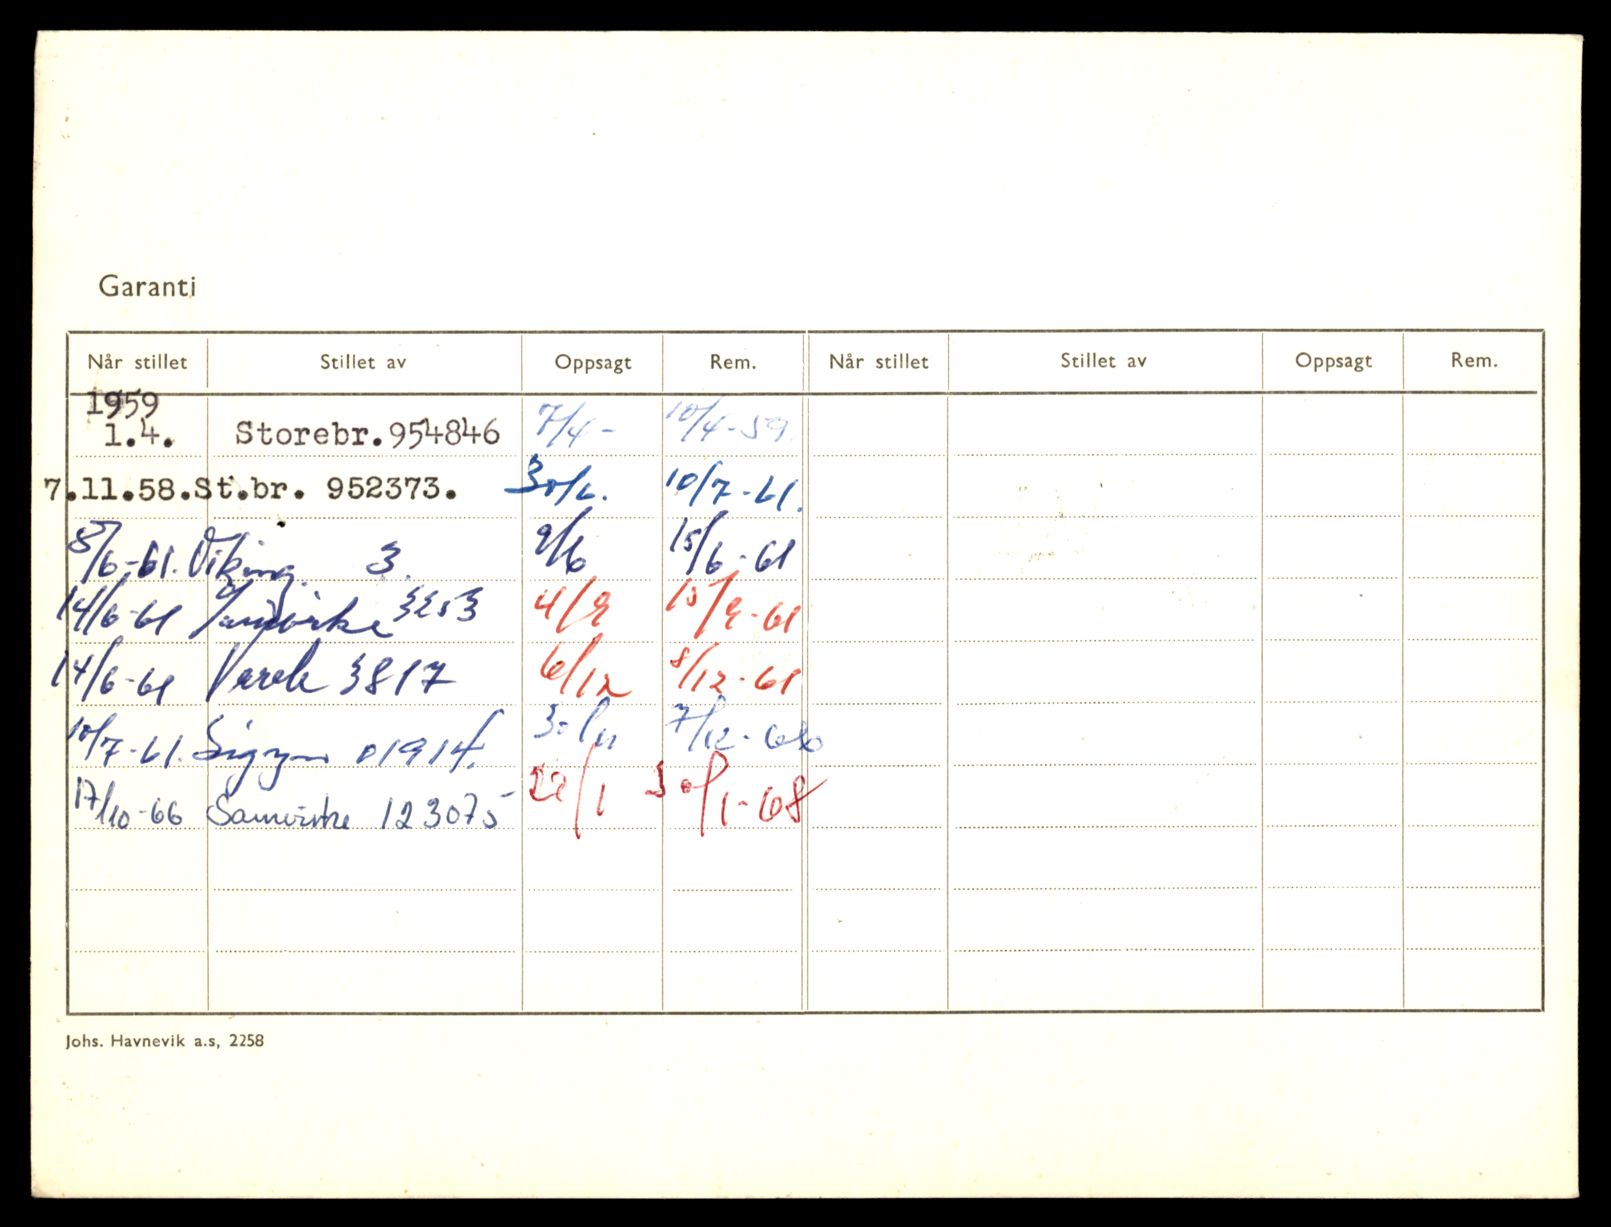 Garanti
Når stillet Stillet av Oppsagt Rem. Når stillet Stillet av Oppsagt Rem.
1959
1.4. Storebr.954846 7/4- 10/4-59.
7.11.58.St.br. 952373. 30/6. 10/7-61.
8/6-61. Viking. 3. 9/6 15/6-61
14/6-61 Samvirke 3253 4/9 15/9-61
14/6-61 3817 6/12 8/12-61
10/7-61. Sigyn 01914. 30/11
17/10-66 Samvirke 123075 22/1 30/1-68
Johs. Havnevik a.s, 2258